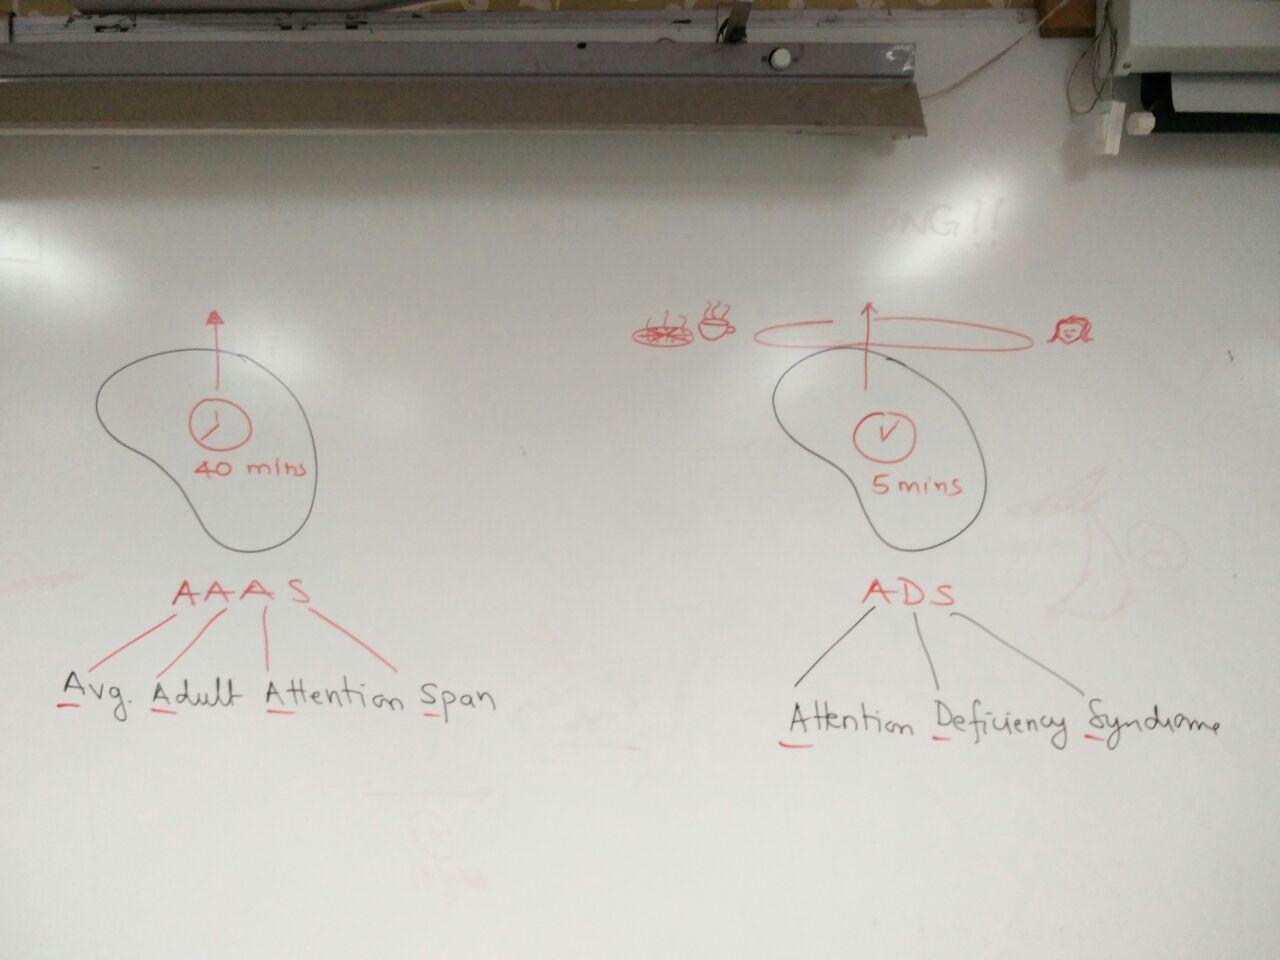 40 mins
AAAS
Avg. Adult Attention Span
5 mins
ADS
Attention Deficiency Syndrome